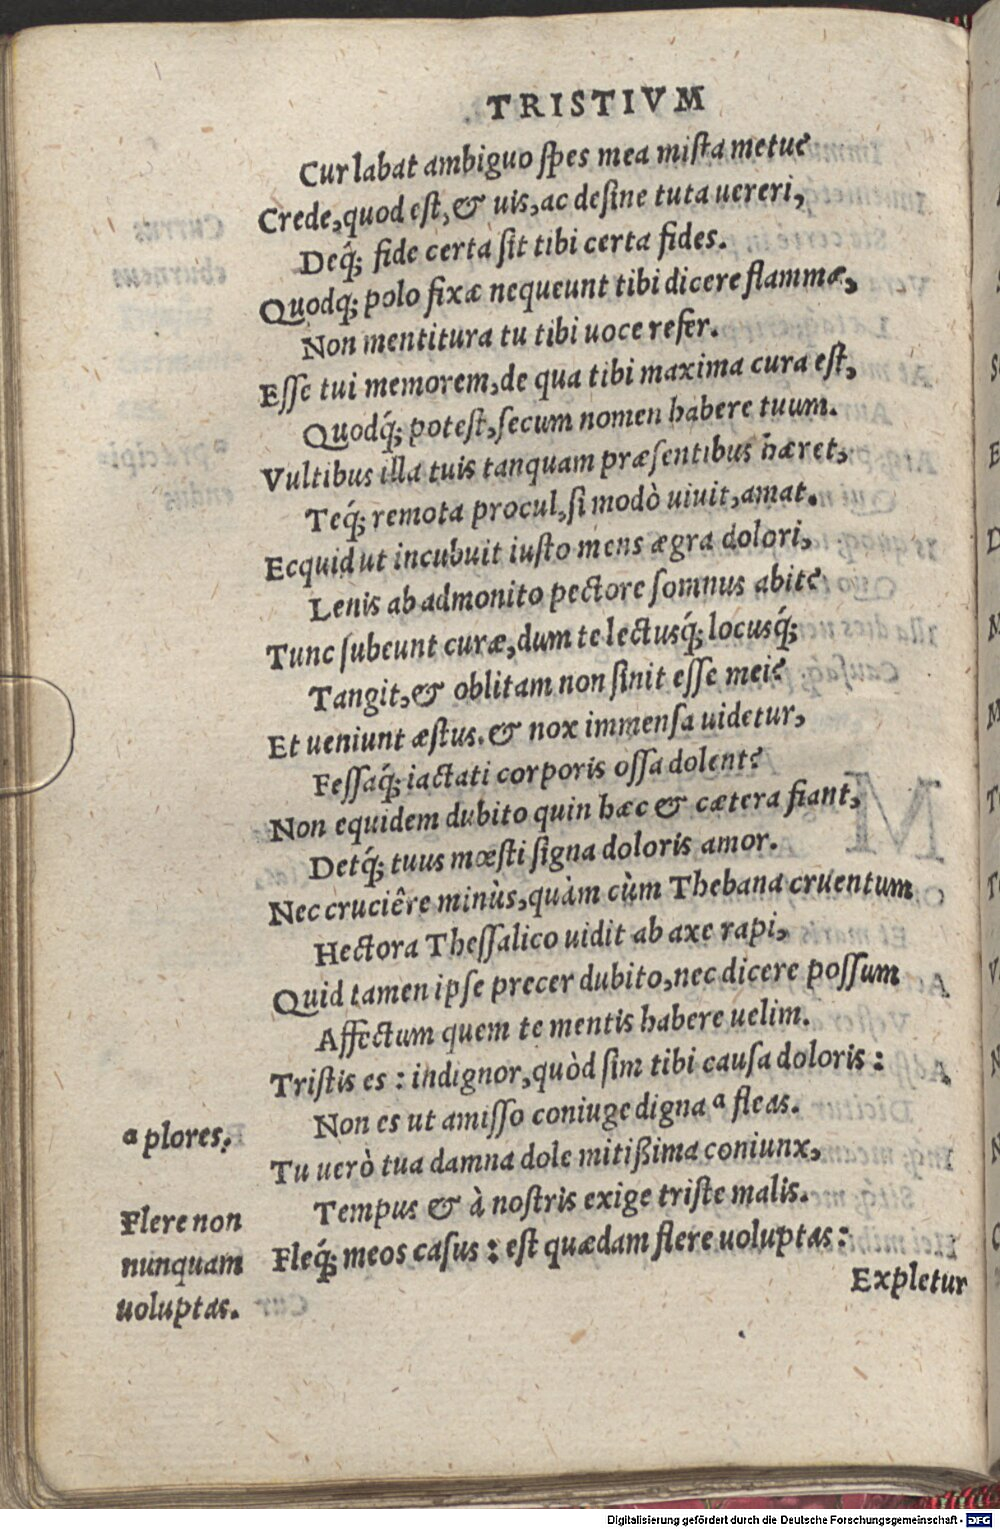 TRISTIVM
Cur labat ambiguo ſpes mea miſta metu?
Crede, quod eſt, & uis, ac deſine tuta uereri,
Deq́; fide certa ſit tibi certa fides.
Quodq; polo fixæ nequeunt tibi dicere flammæ,
Non mentitura tu tibi uoce refer.
Eſſe tui memorem, de qua tibi maxima cura eſt,
Quodq́; poteſt, ſecum nomen habere tuum.
Vultibus illa tuis tanquam præſentibus hæret,
Teq́; remota procul, ſi modò uiuit, amat.
Ecquid ut incubuit iuſto mens ægra dolori,
Lenis ab admonito pectore ſomnus abit?
Tunc ſubeunt curæ, dum te lectusq́; locusq́;
Tangit, & oblitam non ſinit eſſe mei?
Et ueniunt æſtus. & nox immenſa uidetur,
Feſſaq́; iactati corporis oſſa dolent?
Non equidem dubito quin hæc & cætera fiant,
Detq́; tuus mœſti ſigna doloris amor.
Nec cruciêre minùs, quàm cùm Thebana cruentum
Hectora Theſſalico uidit ab axe rapi,
Quid tamen ipſe precer dubito, nec dicere poſſum
Affectum quem te mentis habere uelim.
Triſtis es : indignor, quòd ſim tibi cauſa doloris :
Non es ut amiſſo coniuge digna ª fleas.
ª plores.
Tu uerò tua damna dole mitißima coniunx,
Tempus & à noſtris exige triſte malis.
Fleq́; meos caſus : eſt quædam flere uoluptas :
Flere non
nunquam
uoluptas.
Expletur
Digitalisierung gefördert durch die Deutsche Forschungsgemeinschaft - DFG